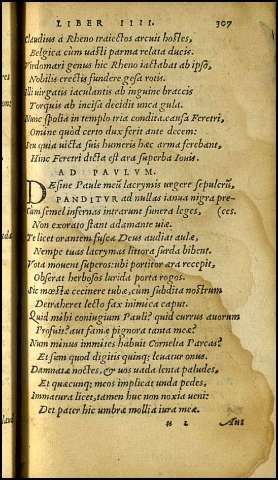 LIBER IIII. 307
Claudius à Rheno traiectos arcuit hostes,
Belgica cùm vasti parma relata ducis.
Virdomari genus hic Rheno iactabat ab ipso,
Nobilis erectis fundere gesa rotis.
Illi virgatis iaculantis ab inguine braccis
Torquis ab incisa decidit unca gula.
Nunc spolia in templo tria condita. causa Feretri,
Omine quòd certo dux ferit ante decem:
Seu quia victa suis humeris hæc arma ferebant,
Hinc Feretri dicta est ara superba Iouis.
AD PAVLVM.
Desine Paule meũ lacrymis urgere sepulcrũ,
PANDITVR ad nullas ianua nigra pre-
Cum semel infernas intrarunt funera leges, (ces.
Non exorato stant adamante uiæ.
Te licet orantem fuscæ Deus audiat aulæ,
Nempe tuas lacrymas littora surda bibent.
Vota mouent superos: ubi portitor æra recepit,
Obserat herbosos lurida porta rogos.
Sic mœstæ cecinere tubæ, cùm subdita nostrum
Detraheret lecto fax inimica caput.
Quid mihi coniugium Pauli? quid currus auorum
Profuit? aut famæ pignora tanta meæ?
Num minus immites habuit Cornelia Parcas?
Et sum quod digitis quinq; leuatur onus.
Damnatæ noctes, & uos uada lenta paludes,
Et quæcunq; meos implicat unda pedes,
Immatura licet, tamen huc non noxia ueni:
Det pater hic umbræ mollia iura meæ.
u 2 Aut